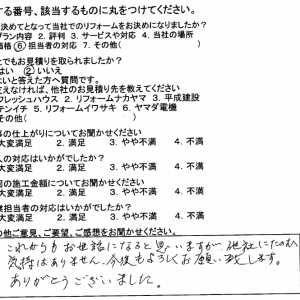 する番号、該当するものに丸をつけてください。
決めてとなって当社でのリフォームをお決めになりましたか?
プラン内容 2. 評判 3. サービスや対応 4. 当社の場所
価格 ⑥ 担当者の対応 7. その他(
でもお見積りを取られましたか?
はい ② いいえ
はいと答えた方へ質問です。
支えなければ、他社のお見積り先を教えてください
フレッシュハウス 2. リフォームナカヤマ 3. 平成建設
テンイチ 5. リフォームイワサキ 6. ヤマダ電機
その他(
事の仕上がりについてお聞かせください
大変満足 2. 満足 3. やや不満 4. 不満
人の対応はいかがでしたか?
大変満足 2. 満足 3. やや不満 4. 不満
回の施工金額についてお聞かせください
大変満足 2. 満足 3. やや不満 4. 不満
業担当者の対応はいかがでしたか?
大変満足 2. 満足 3. やや不満 4. 不満
の他ご意見、ご要望、ご感想をお聞かせください。
これからもお世話になると思いますが、他社にたのむ
気持はありません。今後もよろしくお願い致します。
ありがとうございました。